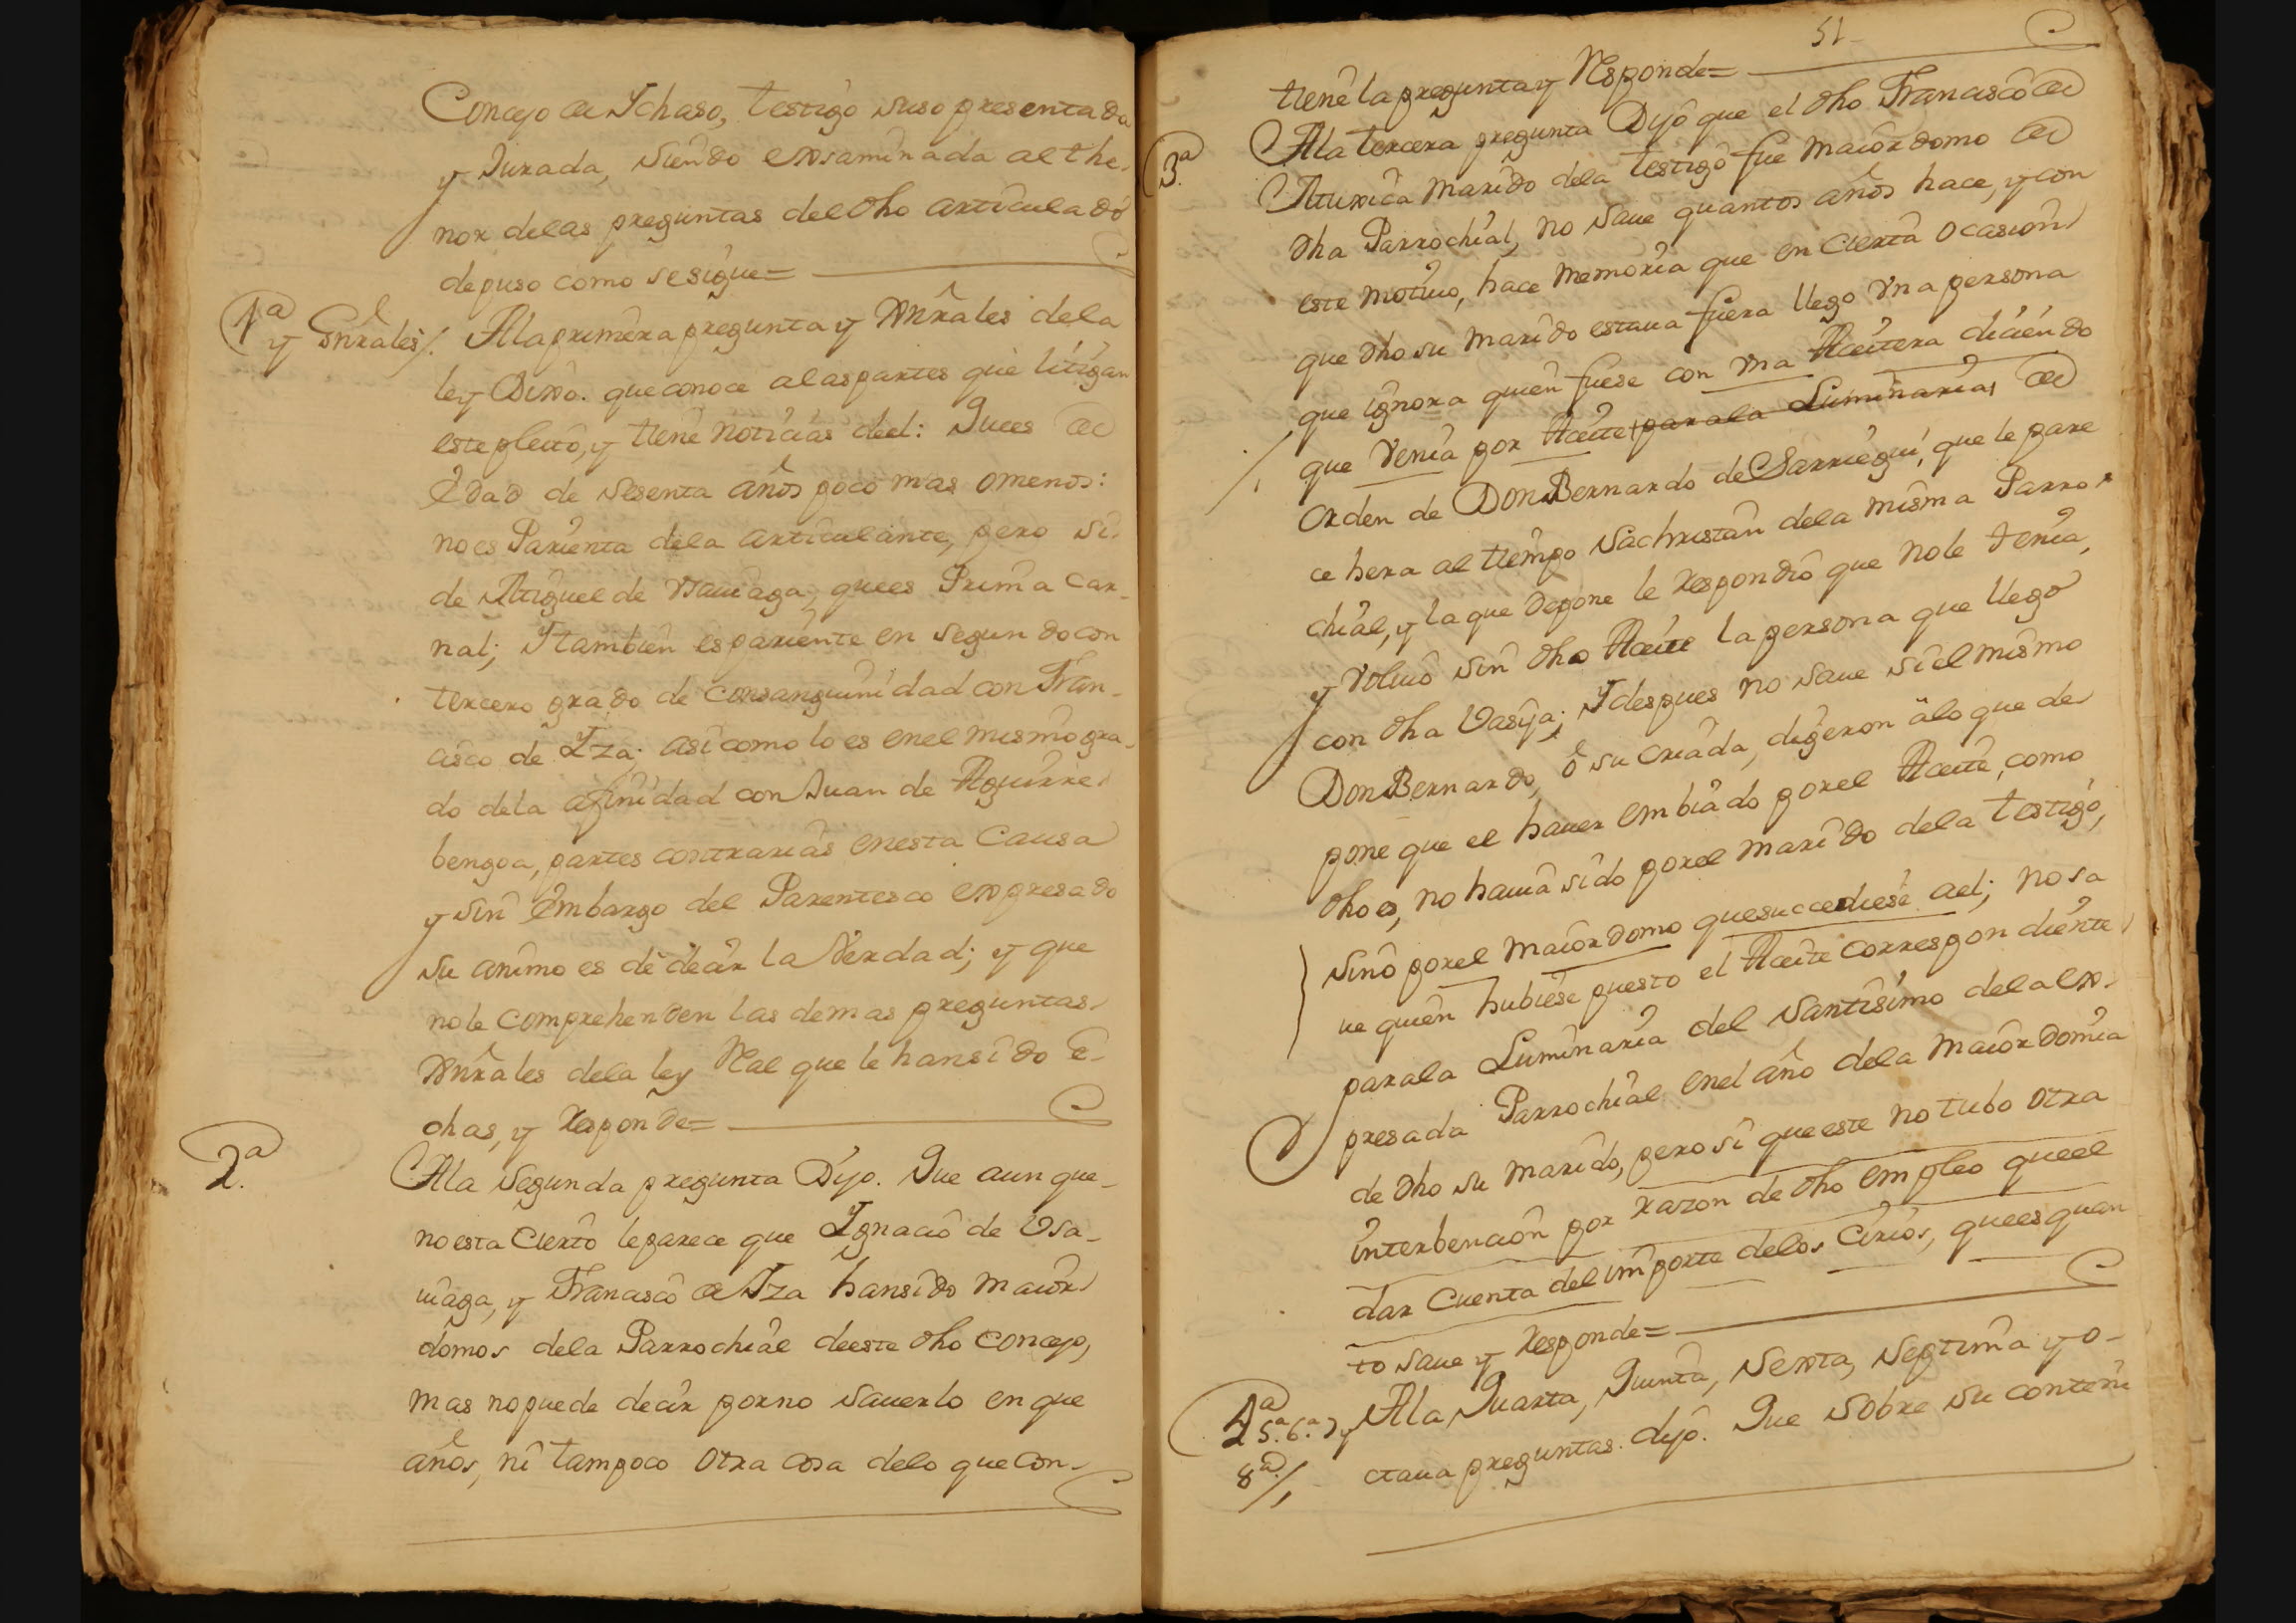 Concejo de Ychaso, testigo suso presentada
y Jurada, siendo exsaminada al the-
nor delas preguntas del dho articulado
depuso como se sigue=
1ª y Gnrales/. Ala primera pregunta y Gnrales dela
ley Dixo. que conoce alas partes que litigan
este pleito, y tiene noticias deel: Que es de
Edad de sesenta años poco mas o menos:
no es Parienta dela articulante, pero si
de Miguel de Vsauiaga, que es Prima car-
nal; Y tambien es pariente en segundo con
tercero grado de consanguinidad con Fran-
cisco de Yza; asi como lo es enel mismo gra-
do dela afinidad con Juan de Aguirre
bengoa, partes contrarias enesta Causa
y sin embargo del Parentesco expresado
su animo es de decir la Verdad; y que
nole comprehenden las demas preguntas
Gnrales dela ley Real que le han sido e-
chas, y Responde=
2ª. Ala segunda pregunta Dijo. Que aunque
no esta Cierto le parece que Ygnacio de Vsa-
uiaga, y Francisco de Yza han sido maior
domos dela Parrochial deeste dho Concejo,
mas no puede decir por no sauerlo en que
años, ni tampoco otra cosa delo que con-
51
tiene la pregunta y Responde=
3ª. Ala tercera pregunta Dijo que el dho Francisco de
Marido dela testigo fue maiordomo de
dha Parrochial, no saue quantos años hace, y con
este motiuo, hace memoria que en Cierta ocasion
que dho su Marido estaua fuera llego vna persona
que ignora quien fuese con vna Aceitera diciendo
que venia por Aceite para la Luminaria, de
orden de Don Bernardo de Sarriegui, que le pare
ce hera al tiempo Sachristan dela misma Parro-
chial, y la que depone le Respondio que nole tenia,
y voluio sin dho Aceite la persona que llego
con dha Vasija; Y despues no saue si el mismo
Don Bernardo, ò su Criada, digeron à lo que de
pone que el hauer embiado porel Aceite, como
dho es, no hauia sido porel marido dela testigo,
sino porel maiordomo que succediese ael; no sa
ue quien hubiese puesto el Aceite correspondiente
para la Luminaria del Santisimo dela ex-
presada Parrochial enel año dela maiordomia
de dho su marido, pero si que este no tubo otra
interbencion por razon de dho empleo que el
dar Cuenta del importe delos Cirios, que es quan
to saue y Responde=
4ª 5ª. 6ª. 7 y 8ª/. Ala Quarta, Quinta, Sexta, Septima y o-
ctaua preguntas. dijo. Que sobre su conteni